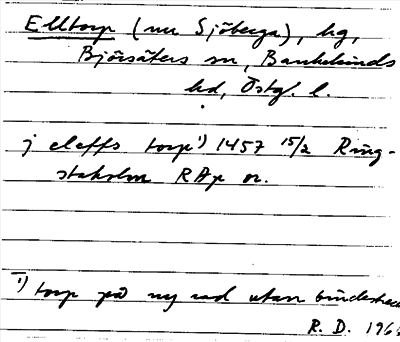 Elltorp (nu Sjöberga), hg,
Björsäters sn, Bankekinds
hd, Östg. l.
j eleffs torp¹) 1457 15/2 Ring-
staholm RAp or.
¹) torp på ny rad utan bindestreck
R. D. 196